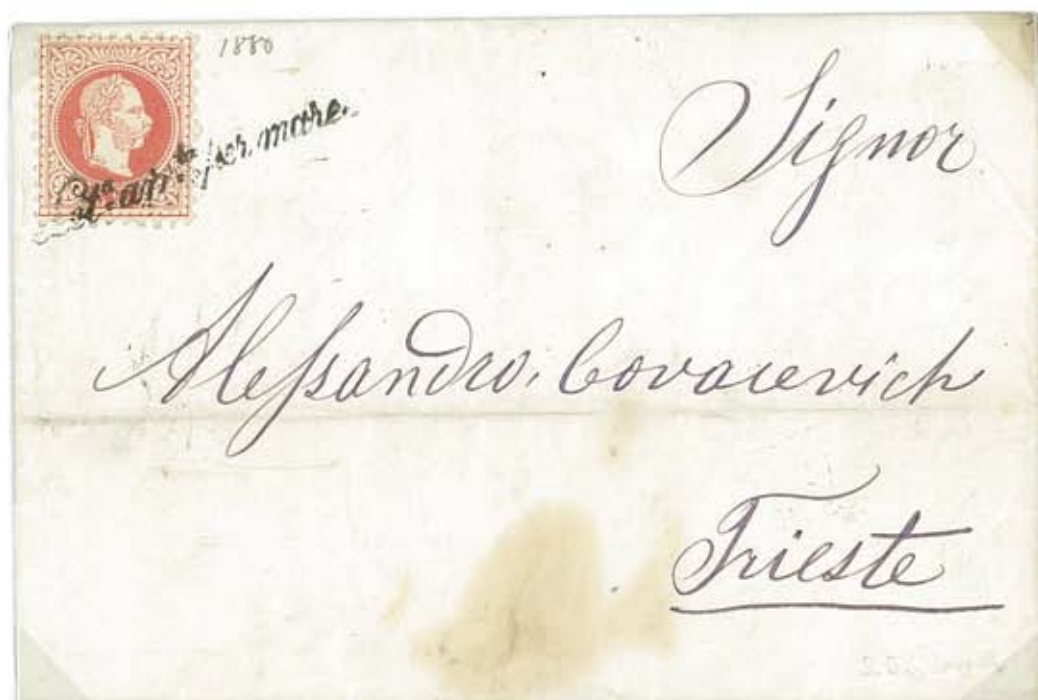 1880
Lra. arrta. per mare.
Signor
Alessandro Covacevich
Trieste